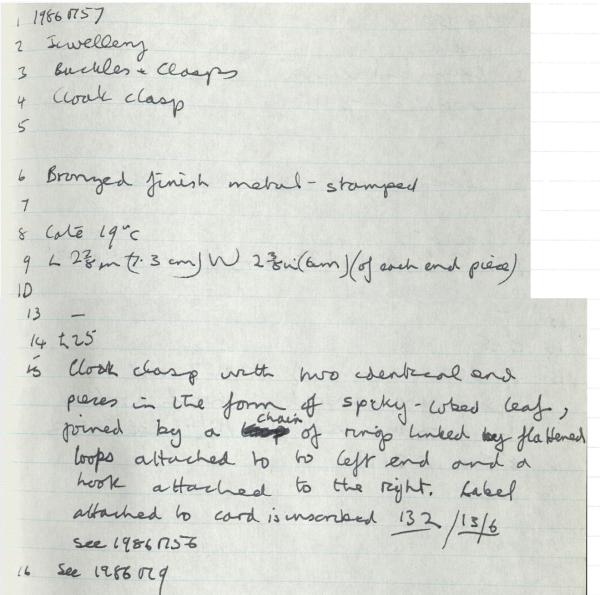 1 1986 M57
2 Jewellery
3 Buckles + Clasps
4 Cloak clasp
5
6 Bronzed finish metal - stamped
7
8 Late 19"c
9 L 2⅞in (7.3 cm) W 2⅜in (6cm) (of each end piece)
10
13 —
14 £25
15 Cloak clasp with two identical end
pieces in the form of spiky-lobed leaf,
joined by a chain of rings linked by flattened
loops attached to to left end and a
hook attached to the right. Label
attached to card is inscribed 132 / 13/6
see 1986 M56
16 See 1986 M9